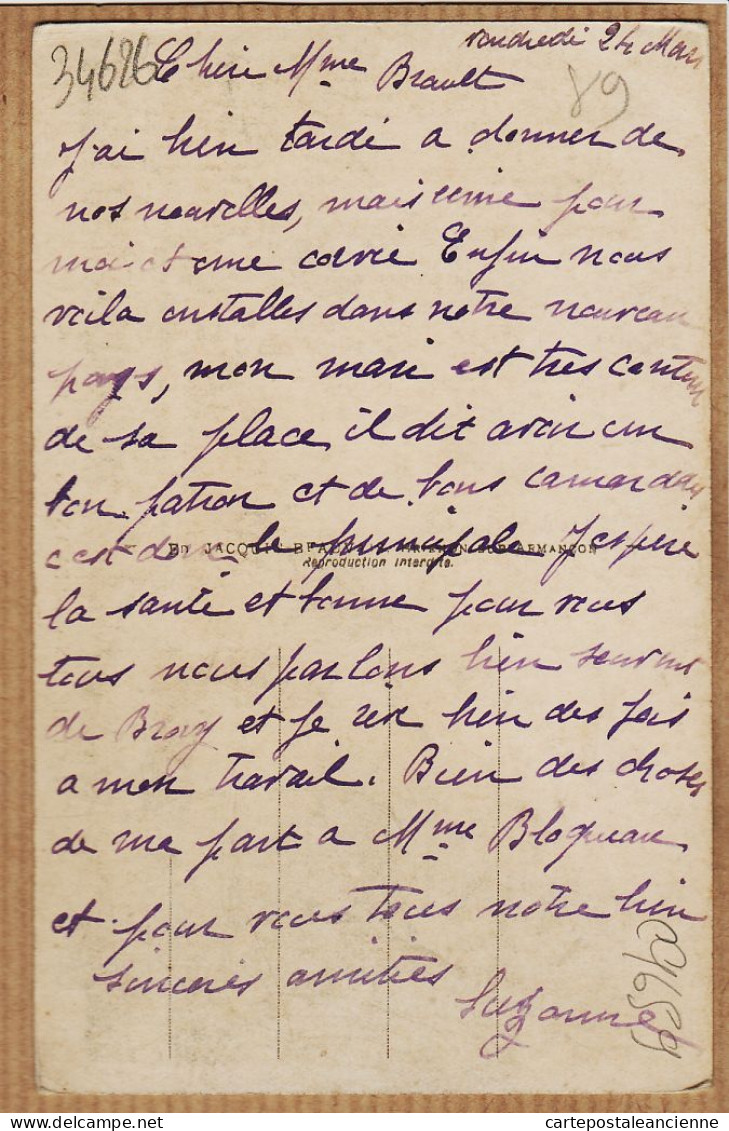 vendredi 24 Mars
34686
Chère Mme Brault
89
J'ai bien tardé a donner de
nos nouvelles, mais ecrire pour
moi et une corvée Enfin nous
voila installes dans notre nouveau
pays, mon mari est tres content
de sa place il dit avoir un
bon patron et de bons camarades
c'est donc le principale J'espere
ED. JACQUIN ARMANÇON
Reproduction interdite.
la santé et bonne pour vous
tous nous parlons bien souvent
de Bray et je bien des fois
a mon travail. Bien des choses
de ma part a Mme Bloqueau
et pour vous tous notre bien
sinceres amitiés
Suzanne
delcampe.net
cartepostaleancienne